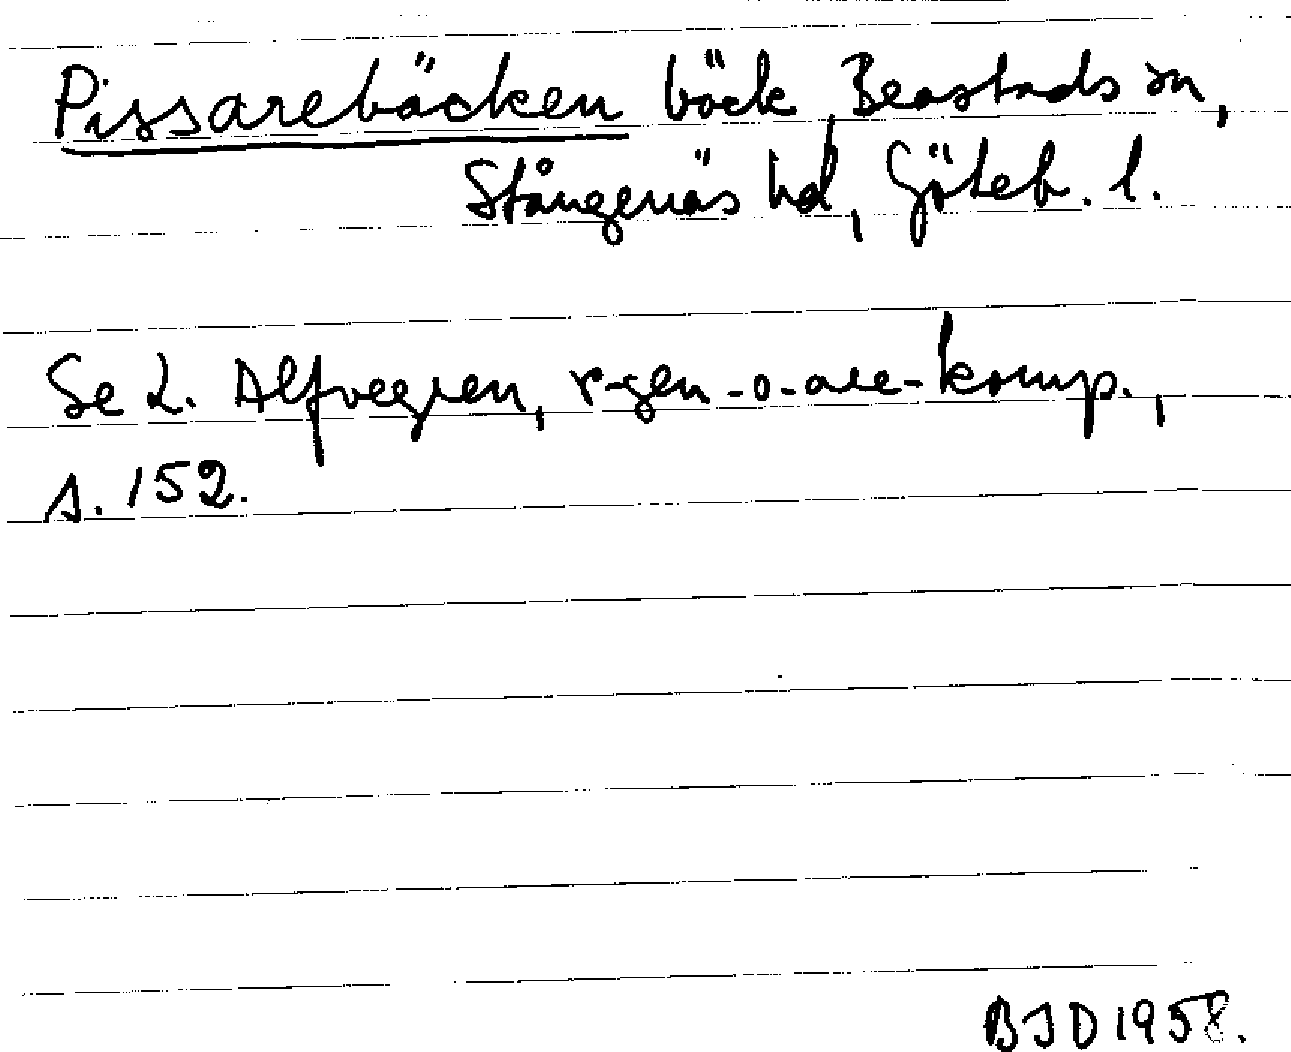 Pissarebäcken bäck Brastads sn,
Stångenäs hd, Göteb. l.
Se L. Alfvegren, r-gen -o-are-komp.,
s. 152.
BJD 1958.